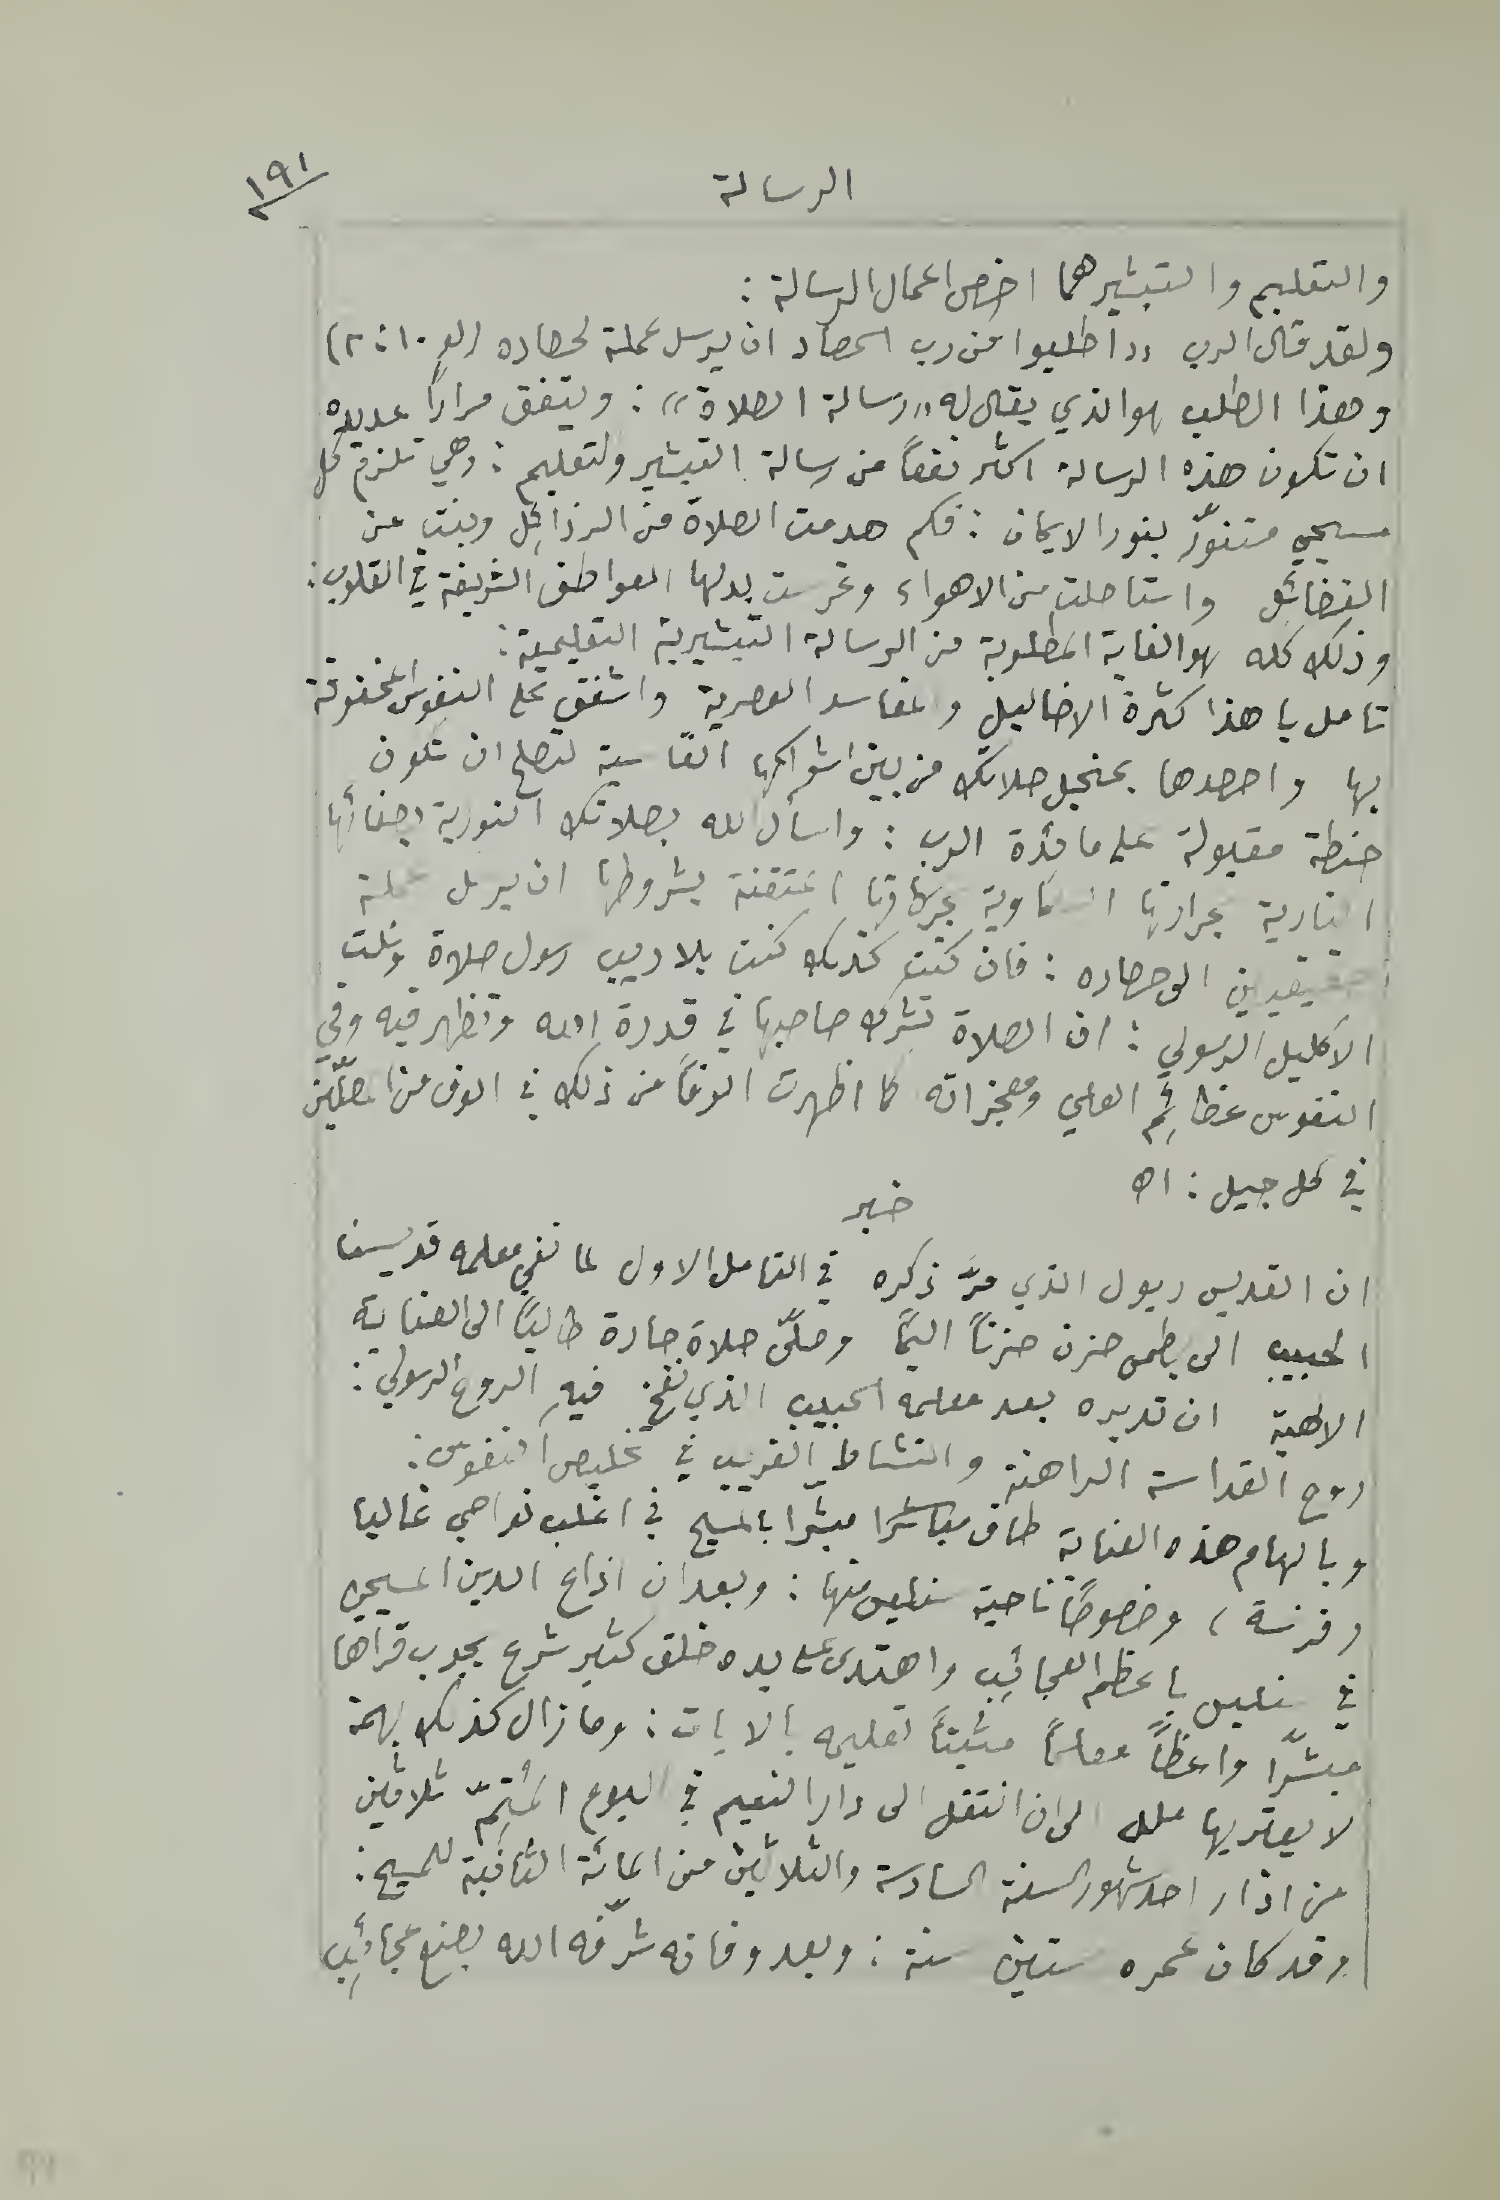 الرسالة
١٩١
والتعليم والتبشير هما اخص اعمال الرسالة :
ولقد قال الرب «اطلبوا من رب الحصاد ان يرسل عملة لحصاده (لو ١٠ : ٢)
وهذا الطلب هو الذي يقال له «رسالة الصلاة» : ويتفق مراراً عديده
ان تكون هذه الرسالة اكثر نفعاً من رسالة التبشير ولتعليم : وهي تلزم كل
مسيحي متنوّر بنور الايمان : فكم هدمت الصلاة من الرذائِل وبنت من
الفضائل واستاصلت من الاهواء وغرست بدلها العواطف الشريفة في القلوب :
وذلك كله هو الغاية المطلوبة من الرسالة التبشيرية التعليمية :
تامل يا هذا كثرة الاضاليل والمفاسد العصرية واشفق على النفوس المخنوقة
بها واحصدها بمنجل صلاتك من بين اشواكها القاسية لتصلح ان تكون
حنطة مقبولة على مائدة الرب : واسأل الله بصلاتك النورية بصفائها
النارية بحرارتها السماوية المتقنة بشروطها ان يرسل عملة
الى حصاده : فان كنت كذلك كنت بلا ريب رسول صلاة ونلت
الاكليل الرسولي : ان الصلاة تشرك صاحبها في قدرة الله وتظهر فيه وفي
النفوس عظائِم العلي ومعجزاته كما اظهرت الوفاً من ذلك في الوف من المصلّين
في كل جيل : اه
خبر
ان القديس ريول الذي مرَّ ذكره في التامل الاول لما نفي معلمه قديسنا
الحبيب الى بطمس حزن حزناً اليماً وصلّى صلاة حارة طالباً الى العناية
الالهية ان تديره بعد معلمه الحبيب الذي نفخ فيهِ الروح الرسولي :
روح القداسة الراهنة والنشاط الغريب في تخليص النفوس :
وبالهام هذه العناية طاف مبشّرا بالمسيح في اغلب نواحي غاليا
(فرنسة) وخصوصاً ناحية سنليس منها : وبعد ان اذاع الدين المسيحي
في سنليس باعظم العجائِب واهتدى على يده خلق كثير شرع يجوب قراها
مبشّرا واعظاً معلماً مثبتاً تعليمه بالايات : وما زال كذلك بهمة
لا يعتريها ملل الى ان انتقل الى دار النعيم في اليوم المُتِمّ ثلاثين
من اذار احد شهور السنة السادسة والثلاثين من المائة الثانية للمسيح :
وقد كان عمره ستين سنة : وبعد وفاته شرّفه الله بصنع عجائِب